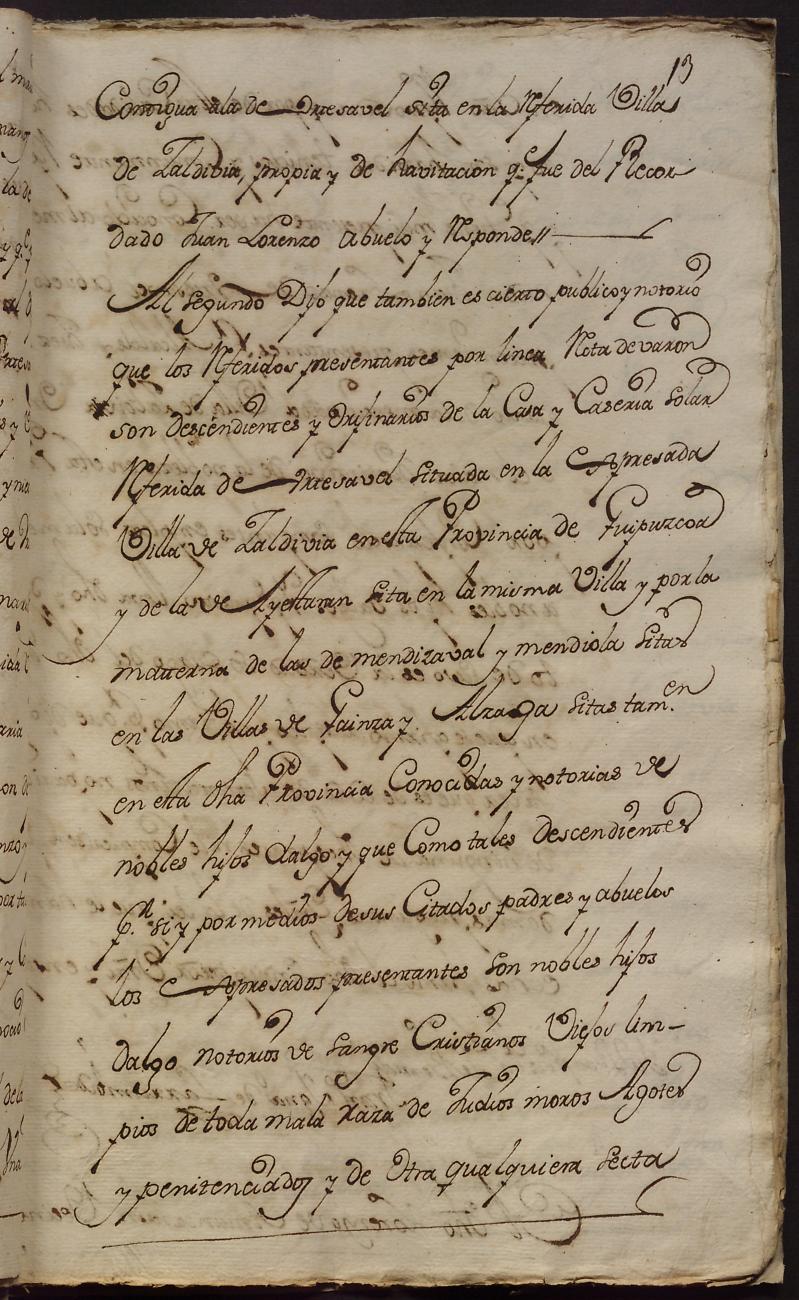 13
Contigua a la de Artesavel sita en la Referida Villa
de Zaldivia, propia y de havitacion q.e fue del Recor
dado Juan Lorenzo abuelo y Responde //
Al segundo Dijo que tambien es cierto publico y notorio
que los Referidos presentantes por linea Recta de varon
son descendientes y orijinarios de la Casa y Caseria Solar
Referida de Artesavel situada en la Expresada
Villa de Zaldivia en esta Provincia de Guipuzcoa
y de la de Ayestaran sita en la misma Villa y por la
materna de las de mendizaval y mendiola sitas
en las Villas de Gainza y Alzaga sitas tam.en
en esta dha Provincia Conocidas y notorias de
nobles hijos dalgo y que Como tales descendientes
p.r si y por medios de sus Citados padres y abuelos
los Expresados presentantes son nobles hijos
dalgo notorios de sangre Cristianos Viejos lim-
pios de toda mala raza de Judios moros Agotes
y penitenciados y de otra qualquiera secta